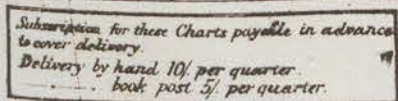 Subscription for these Charts payable in advance
to cover delivery.
Delivery by hand 10/. per quarter.
........ book post 5/. per quarter.